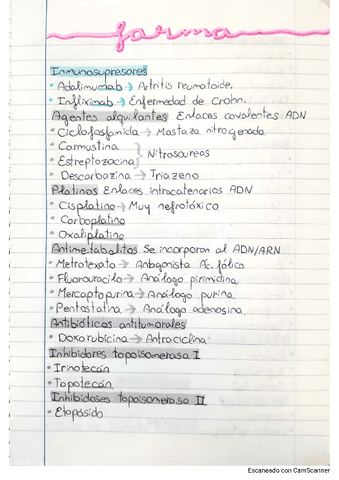 farma
Inmunosupresores
• Adalimumab → Artritis reumatoide.
• Infliximab → Enfermedad de Crohn.
Agentes alquilantes Enlaces covalentes ADN
• Ciclofosfamida → Mostaza nitrogenada
• Carmustina
• Estreptozocina } Nitrosureas
• Descarbazina → Triazeno
Platinos Enlaces intracatenarios ADN
• Cisplatino → Muy nefrotóxico
• Carboplatino
• Oxaliplatino
Antimetabolitos Se incorporan al ADN/ARN
• Metrotexato → Antagonista Ac. fólico
• Fluorouracilo → Análogo pirimidina
• Mercaptopurina → Análogo purina
• Pentostatina → Análogo adenosina
Antibióticos antitumorales
• Doxorubicina → Antraciclina
Inhibidores topoisomerasa I
• Irinotecán
• Topotecán
Inhibidores topoisomerasa II
• Etopósido
Escaneado con CamScanner